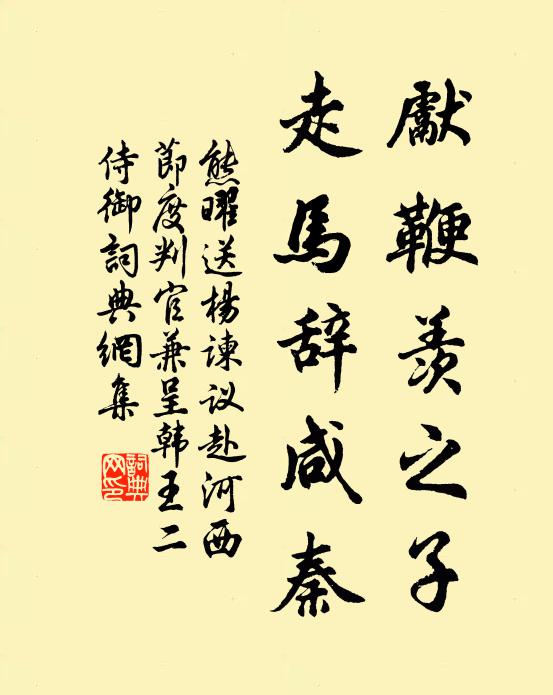 獻鞭羨之子
走馬辞咸秦
熊曜送楊諫议赴河西
節度判官兼呈韩王二
侍御詞典網集
詞典网印